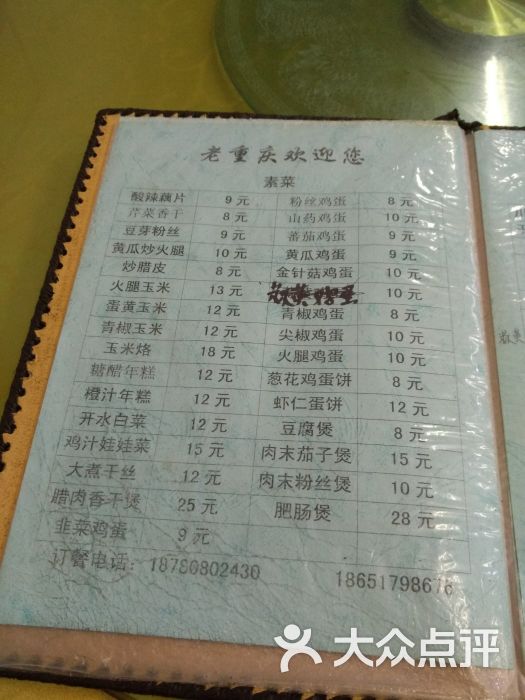 老重庆欢迎您
素菜
酸辣藕片 9 元 粉丝鸡蛋 8 元
芹菜香干 8 元 山药鸡蛋 10 元
豆芽粉丝 9 元 蕃茄鸡蛋 9 元
黄瓜炒火腿 10 元 黄瓜鸡蛋 9 元
炒腊皮 8 元 金针菇鸡蛋 10 元
火腿玉米 13 元 10 元
蛋黄玉米 12 元 青椒鸡蛋 8 元
青椒玉米 12 元 尖椒鸡蛋 10 元
玉米烙 18 元 火腿鸡蛋 10 元
糖醋年糕 12 元 葱花鸡蛋饼 8 元
橙汁年糕 12 元 虾仁蛋饼 12 元
开水白菜 12 元 豆腐煲 8 元
鸡汁娃娃菜 15 元 肉末茄子煲 15 元
大煮干丝 12 元 肉末粉丝煲 10 元
腊肉香干煲 25 元 肥肠煲 28 元
韭菜鸡蛋 9 元
订餐电话：18780802430 18651798676
大众点评